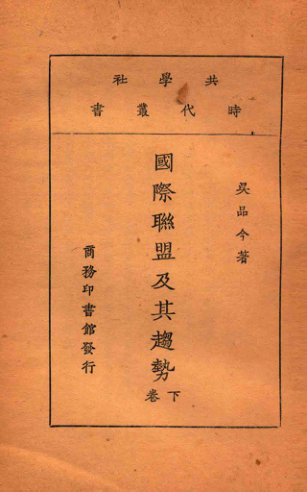 共學社
時代叢書
吳品今著
國際聯盟及其趨勢
下卷
商務印書館發行